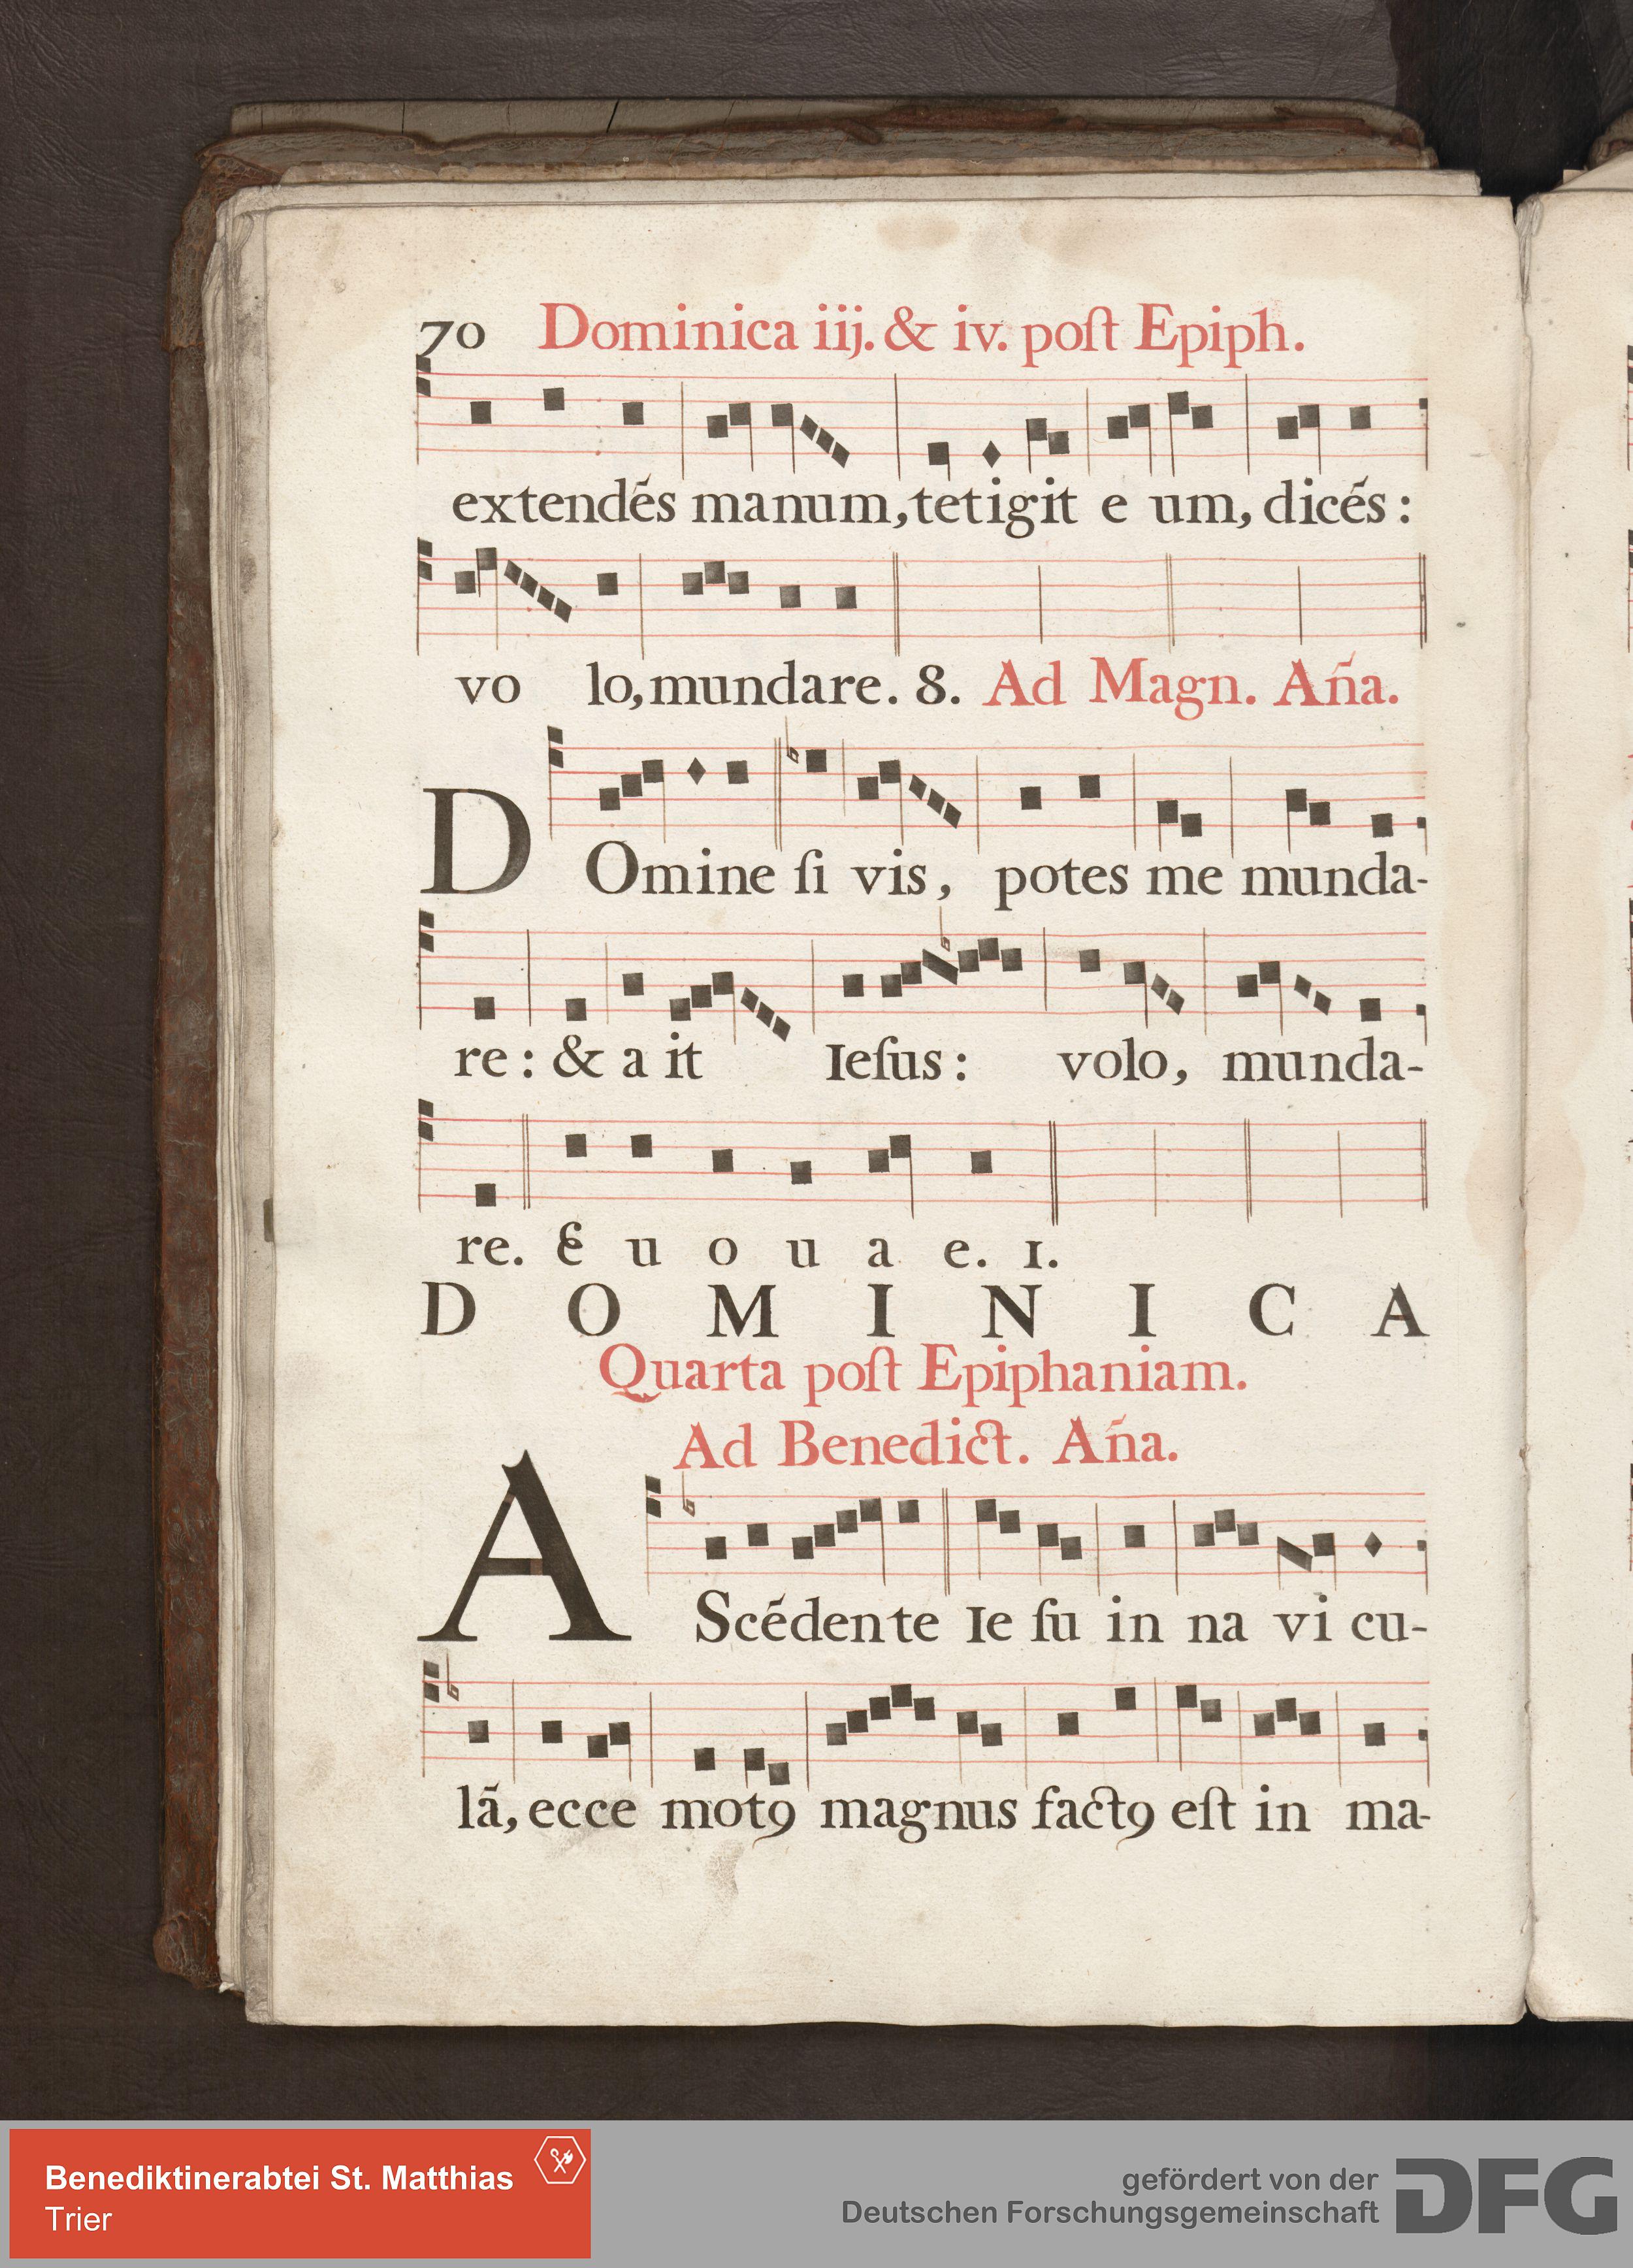 70 Dominica iij. & iv. poſt Epiph.
extendẽs manum, tetigit e um, dicẽs :
vo lo, mundare. 8. Ad Magn. Aña.
DOmine ſi vis, potes me munda-
re : & a it Ieſus : volo, munda-
re. E u o u a e. 1.
D O M I N I C A
Quarta poſt Epiphaniam.
Ad Benedict. Aña.
AScẽdente Ie ſu in na vi cu-
lã, ecce motꝰ magnus factꝰ eſt in ma-
Benediktinerabtei St. Matthias
Trier
gefördert von der
Deutschen Forschungsgemeinschaft
DFG